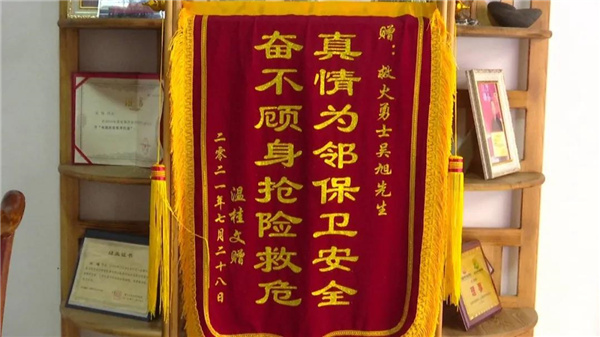 赠：救火勇士吴旭先生
真情为邻保卫安全
奋不顾身抢险救危
温桂文赠
二零二一年七月二十八日